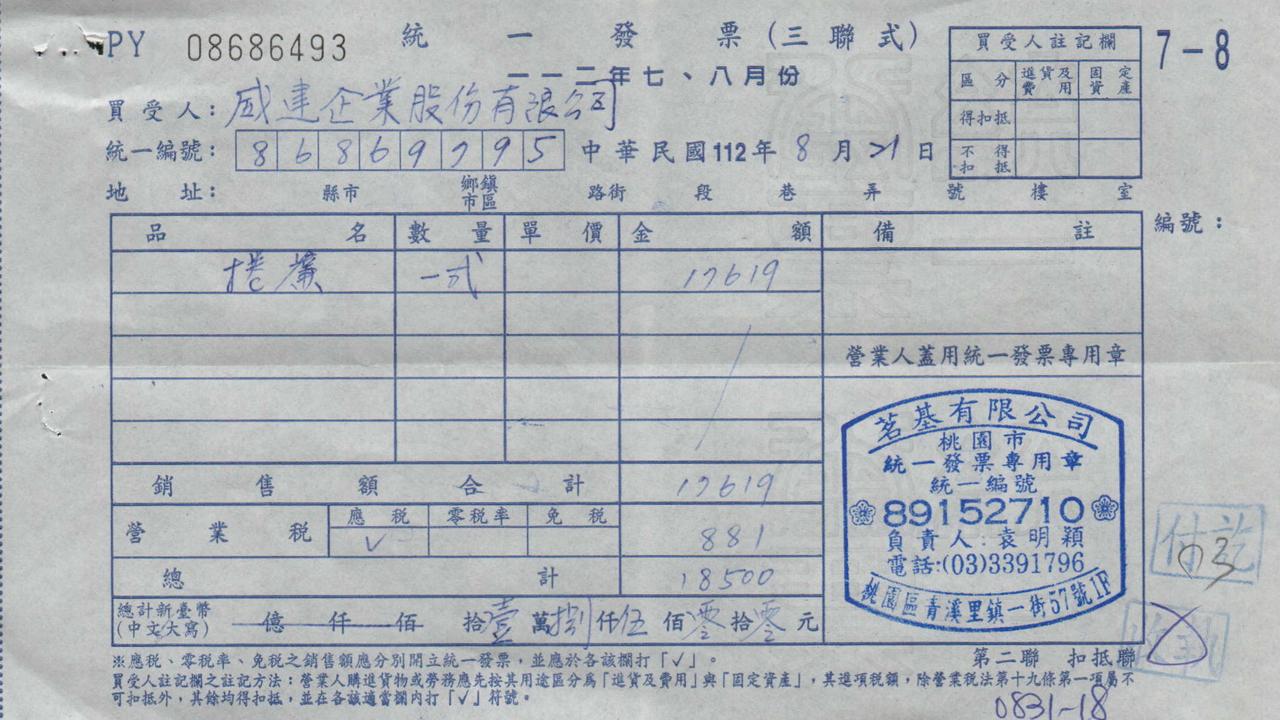 PY 08686493 統一發票(三聯式)
一一二年七、八月份
7-8
買受人註記欄
區分 進貨及費用 固定資產
得扣抵
不得扣抵
買受人: 威建企業股份有限公司
統一編號: 86869795 中華民國112年8月21日
地址: 縣市 鄉鎮市區 路街 段 巷 弄 號 樓 室
編號:
品名 數量 單價 金額 備註
捲簾 一式 17619
營業人蓋用統一發票專用章
銷售額合計 17619
營業稅 應稅 零稅率 免稅
✓ 881
總計 18500
總計新臺幣(中文大寫) 億 仟 佰 拾壹萬捌仟伍佰零拾零元
茗基有限公司
桃園市
統一發票專用章
統一編號
89152710
負責人:袁明穎
電話:(03)3391796
桃園區青溪里鎮一街57號1F
付訖
第二聯 扣抵聯
※應稅、零稅率、免稅之銷售額應分別開立統一發票,並應於各該欄打「✓」。
買受人註記欄之註記方法:營業人購進貨物或勞務應先按其用途區分為「進貨及費用」與「固定資產」,其進項稅額,除營業稅法第十九條第一項屬不
可扣抵外,其餘均得扣抵,並在各該適當欄內打「✓」符號。
0831-18